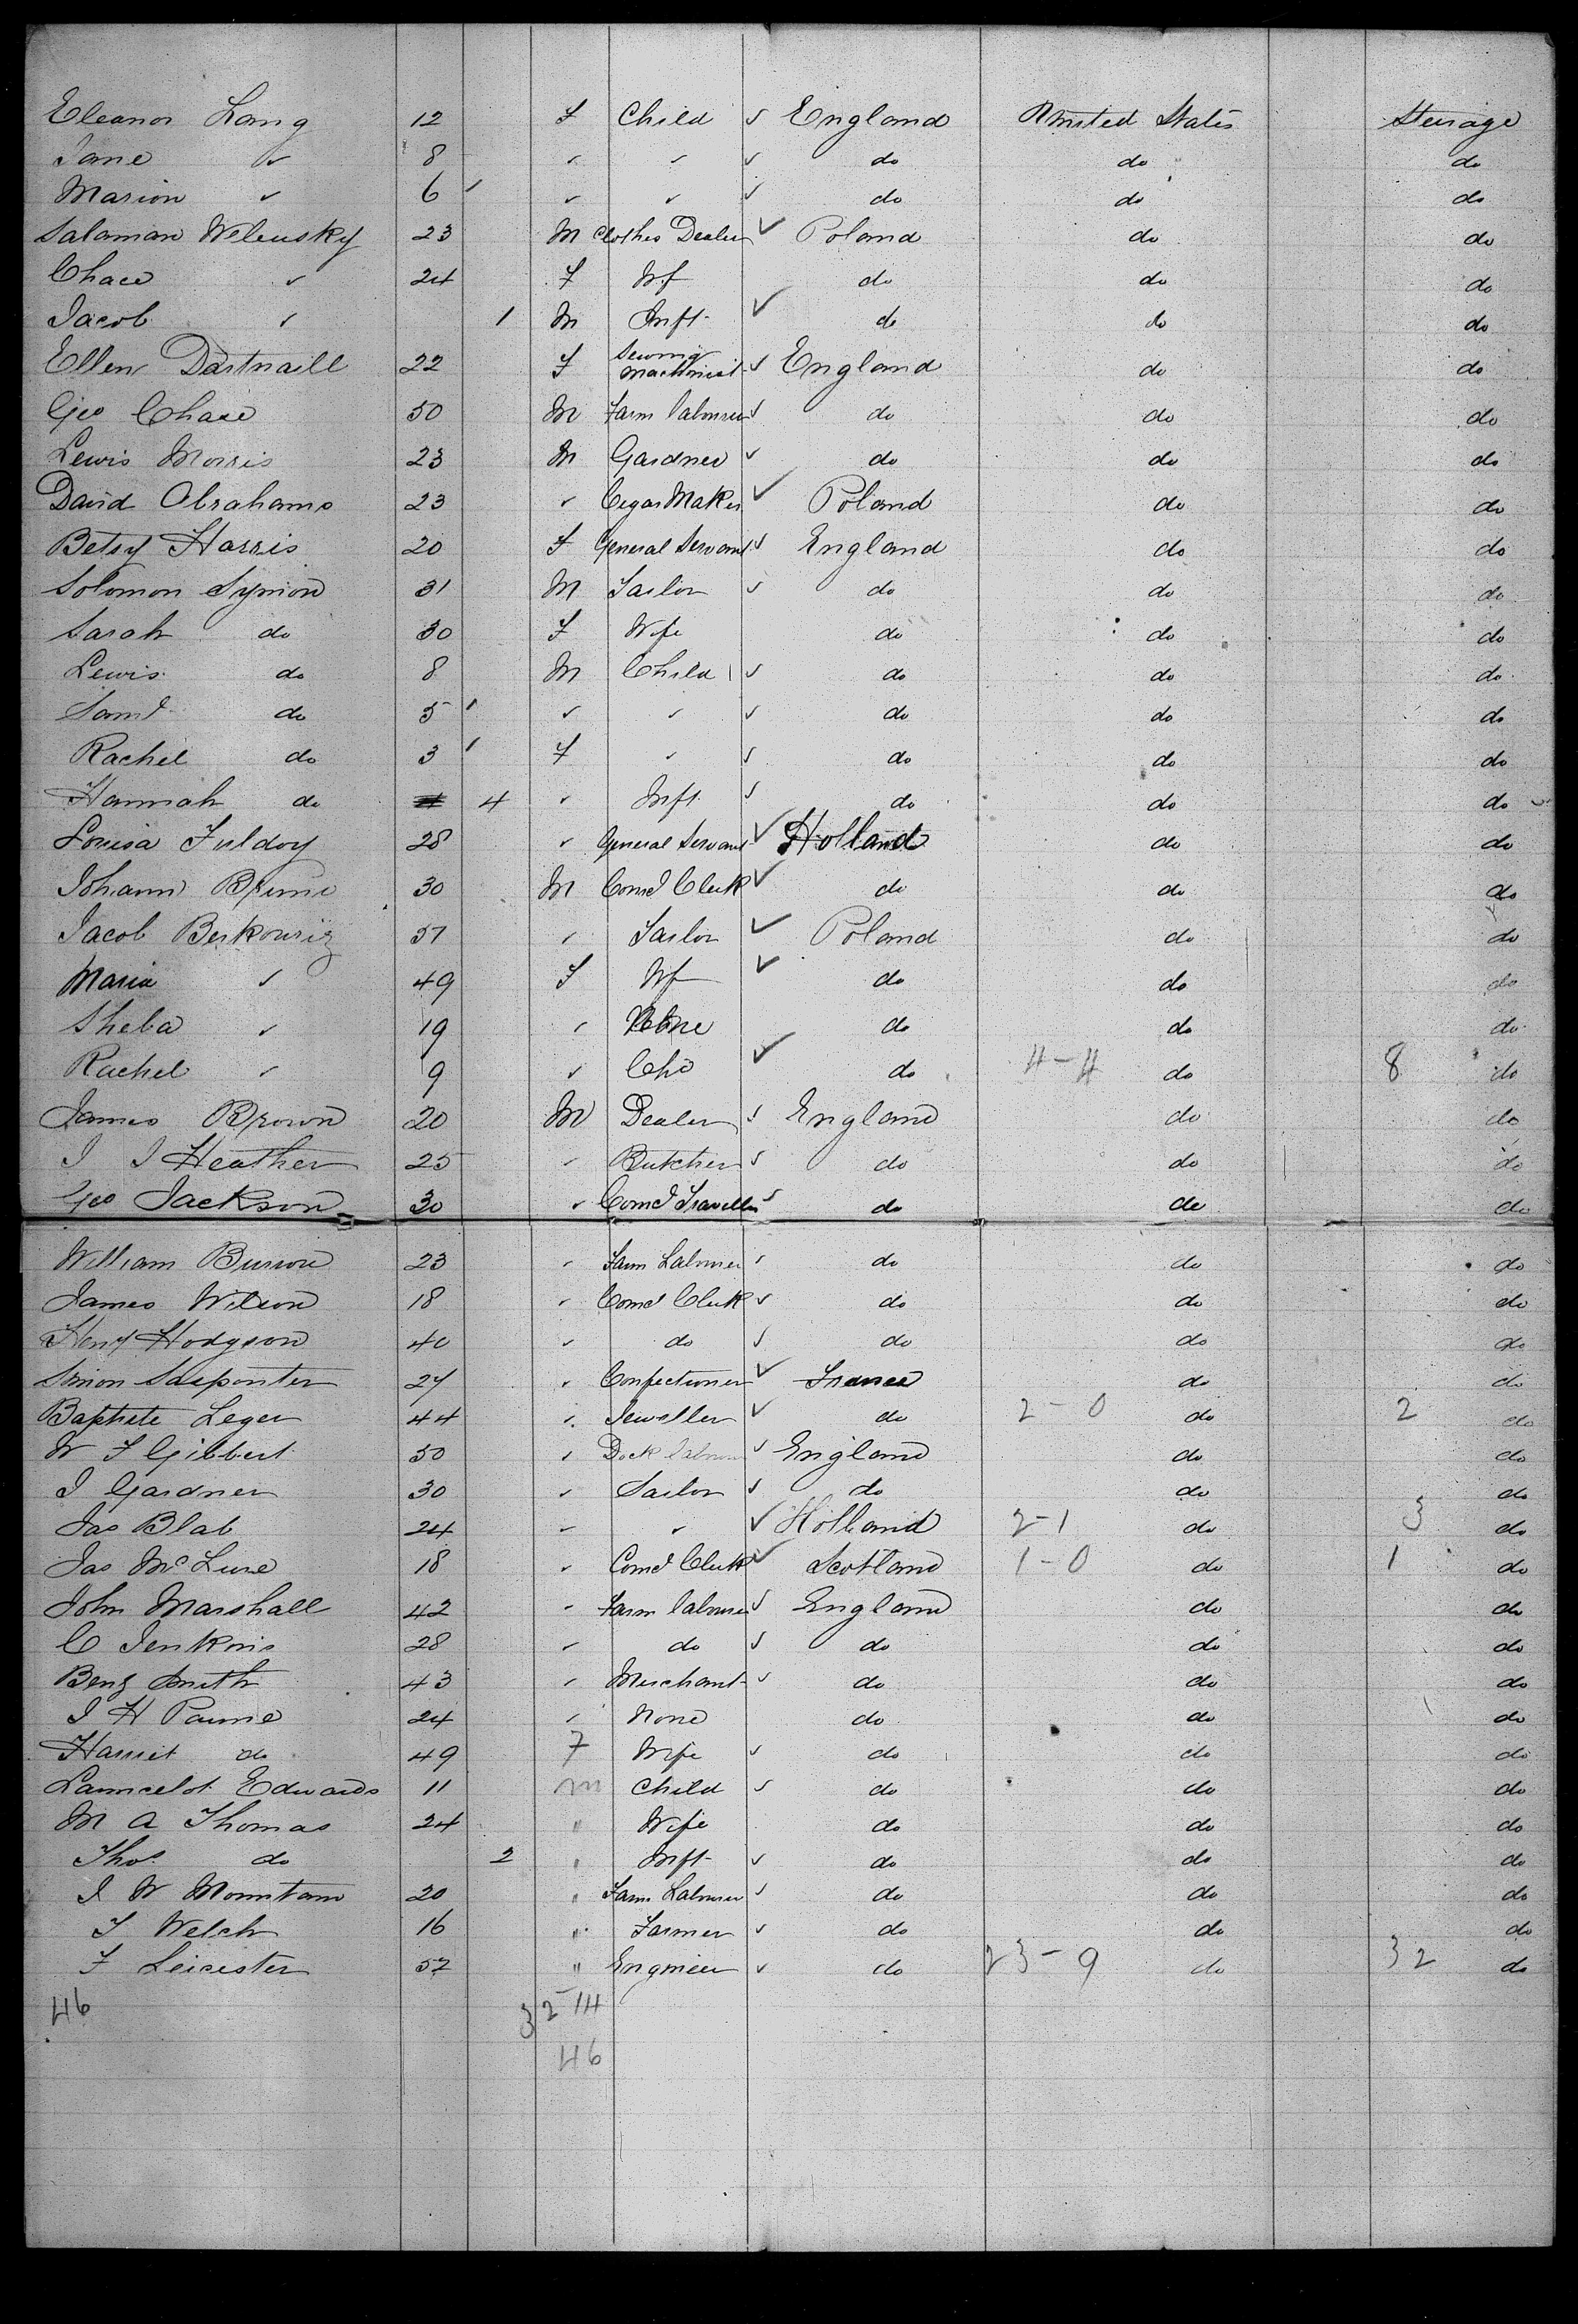 Eleanor Lang 12 F Child ✓ England United States Steerage
Jane ✓ 8 ✓ ✓ ✓ do do do
Marion ✓ 6 ✓ ✓ ✓ do do do
Salaman Welensky 23 M Clothes Dealer ✓ Poland do do
Chace ✓ 24 F Wf do do do
Jacob ✓ 1 M Inft ✓ do do do
Ellen Dartnaill 22 F Sewing Machinist ✓ England do do
Geo Chase 50 M Farm labourer ✓ do do do
Lewis Morris 23 M Gardner ✓ do do do
David Abrahams 23 ✓ Cegar Maker ✓ Poland do do
Betsy Harris 20 F General Servant ✓ England do do
Solomon Symon 31 M Tailor ✓ do do do
Sarah do 30 F Wife do do do
Lewis do 8 M Child ✓ do do do
Saml do 5 ✓ ✓ ✓ do do do
Rachel do 3 F ✓ ✓ do do do
Hannah do 4 ✓ Inft ✓ do do do
Louisa Fuldoy 28 ✓ General Servant ✓ Holland do do
Johann 30 M Comcl Clerk ✓ do do do
Jacob Berkowriz 57 ✓ Tailor ✓ Poland do do
Maria ✓ 49 F Wf ✓ do do do
Sheba ✓ 19 ✓ None do do do
Rachel ✓ 9 ✓ Chd ✓ do 4-4 do 8 do
James Brown 20 M Dealer ✓ England do do
J J Heather 25 ✓ Butcher ✓ do do do
Geo Jackson 30 ✓ Comcl Traveller ✓ do do do
William 23 ✓ Farm Labourer ✓ do do do
James Wilson 18 ✓ Comcl Clerk ✓ do do do
Heny Hodgson 40 ✓ do ✓ do do do
Simon Saiponter 27 ✓ Confectioner ✓ France do do
Baptiste Leger 44 ✓ Jeweller ✓ do 2-0 do 2 do
W F Gibbert 50 ✓ Dock labourer ✓ England do do
J Gardner 30 ✓ Sailor ✓ do do do
Jas Blab 24 ✓ ✓ ✓ Holland 2-1 do 3 do
Jas McLure 18 ✓ Comcl Clerk ✓ Scotland 1-0 do 1 do
John Marshall 42 ✓ Farm labourer ✓ England do do
C Jenkins 28 ✓ do ✓ do do do
Benj Smith 43 ✓ Merchant ✓ do do do
J H Paine 24 ✓ None do do do
Harriet do 49 F Wife ✓ do do do
Launcelot Edwards 11 m Child ✓ do do do
M A Thomas 24 " Wife do do do
Thos do 2 " Inft ✓ do do do
J W Mountain 20 " Farm Labourer ✓ do do do
J Welch 16 " Farmer ✓ do do do
F Leicester 57 " Engineer ✓ do 23-9 do 32 do
46 32-14
46